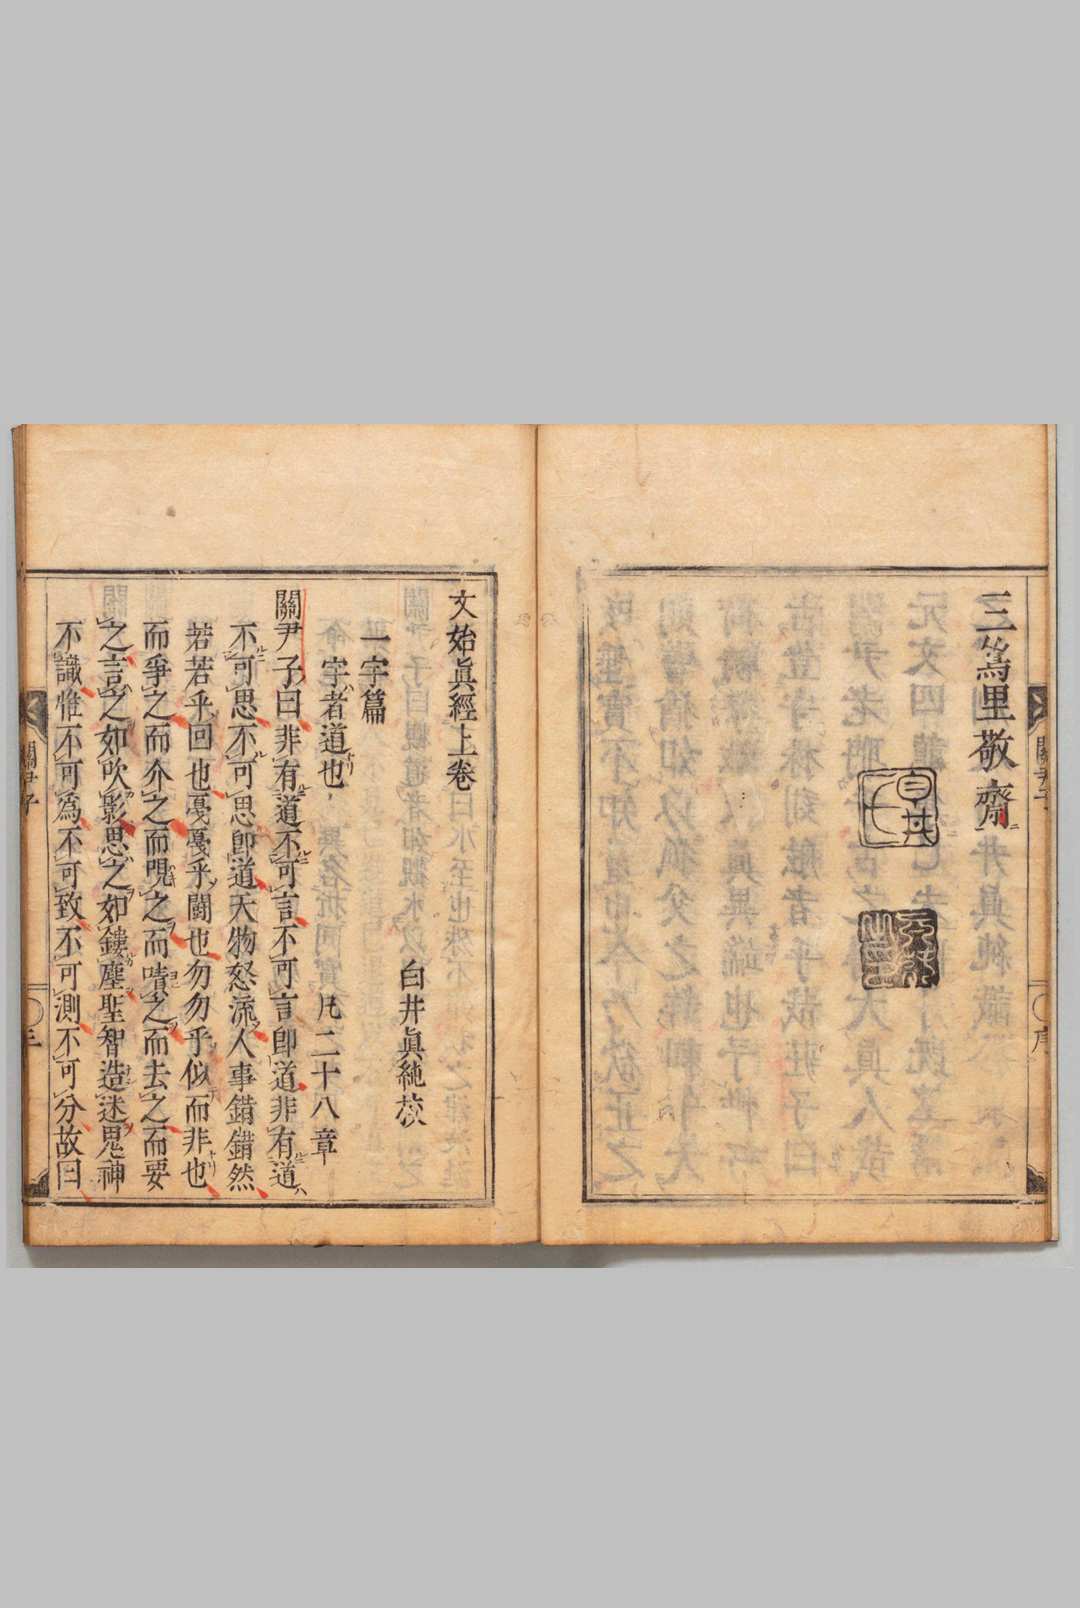 三篤里敬齋
文始眞經上卷
白井眞純校
一宇篇
宇者道也
凡二十八章
關尹子曰非有道不可言不可言即道非有道
不可思不可思即道天物怒流人事錯錯然
若若乎回也戞戞乎鬪也勿勿乎似而非也
而爭之而介之而哯之而嘖之而去之而要
之言之如吹影思之如鏤塵聖智造迷鬼神
不識惟不可爲不可致不可測不可分故曰
關尹子